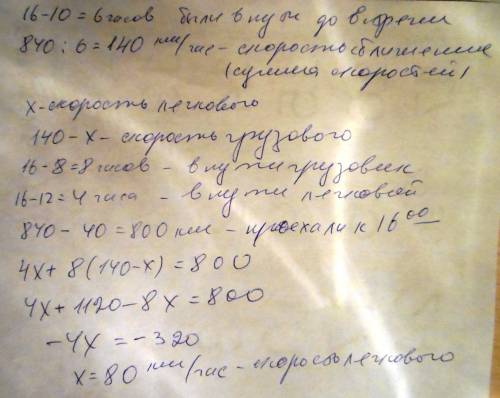 16-10=6 часов были в пути до встречи
840:6=140 км/час - скорость сближения
(сумма скоростей)
x-скорость легкового
140-x-скорость грузового
16-8=8 часов - в пути грузовик
16-12=4 часа - в пути легковой
840-40=800 км - проехали к 16 00
4x+8(140-x)=800
4x+1120-8x=800
-4x=-320
x=80 км/час - скорость легкового